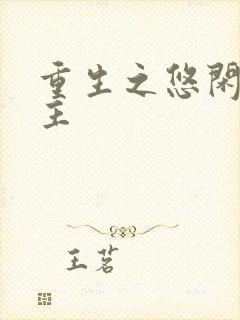 重生之悠閑
主
王茗